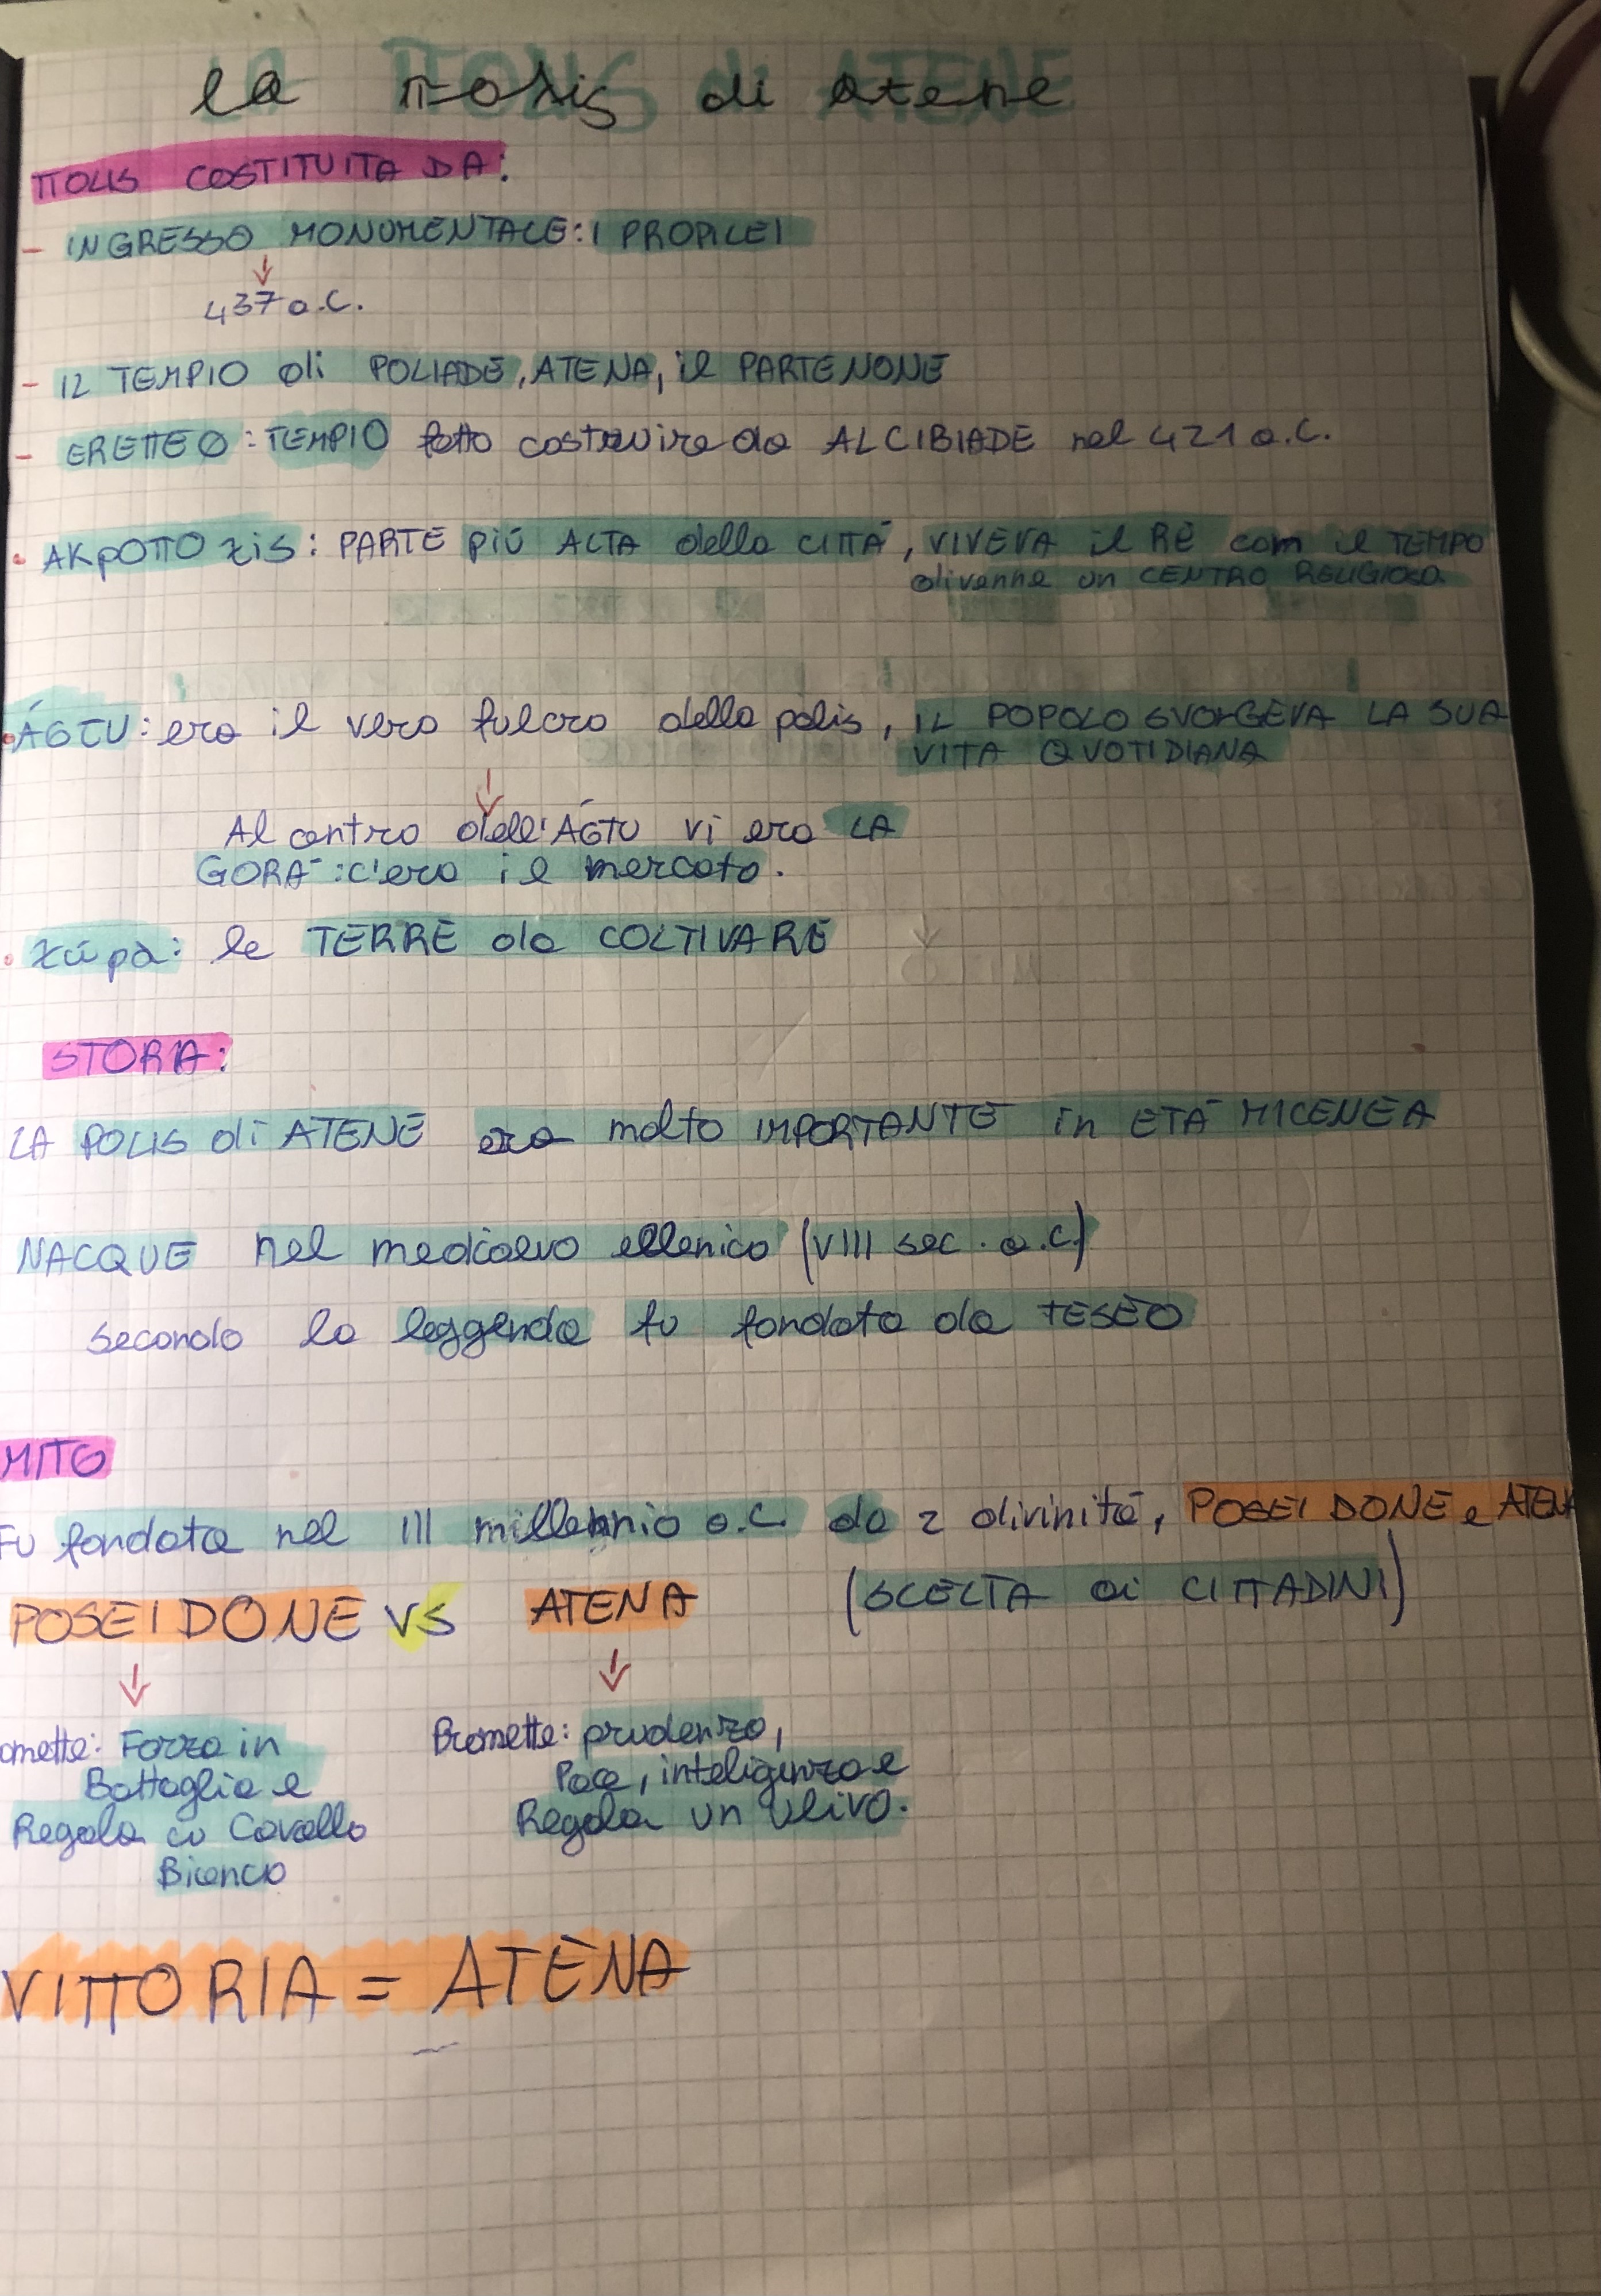 la πολis di atene
πOLIS COSTITUITA DA:
- INGRESSO MONUMENTALE: I PROPILEI
↓
437 a.C.
- IL TEMPIO di POLIADE, ATENA, il PARTENONE
- ERETTEO: TEMPIO fatto costruire da ALCIBIADE nel 421 a.C.
• AKpOπOλis: PARTE PIÚ ALTA della CITTÁ, VIVEVA il RE com il TEMPO
divenne un CENTRO RELIGIOSO.
• ÁGTU: era il vero fulcro della polis, IL POPOLO SVOLGEVA LA SUA
VITA QUOTIDIANA
↓
Al centro dell'ÁGTU vi era LA
GORÁ: c'era il mercato.
• χώρα: le TERRE da COLTIVARE
STORIA:
LA POLIS di ATENE era molto IMPORTANTE in ETÁ MICENEA
NACQUE nel medioevo ellenico (VIII sec. a.C.)
secondo la leggenda fu fondata da TESEO
MITO
FU fondata nel III millennio a.C. da 2 divinitá, POSEIDONE e ATENA
POSEIDONE VS ATENA (SCELTA ai CITTADINI)
↓ ↓
omette: Forza in Promette: prudenza,
Battaglia e Pace, inteligenza e
Regala un Cavallo Regala un ulivo.
Bianco
VITTORIA = ATENA